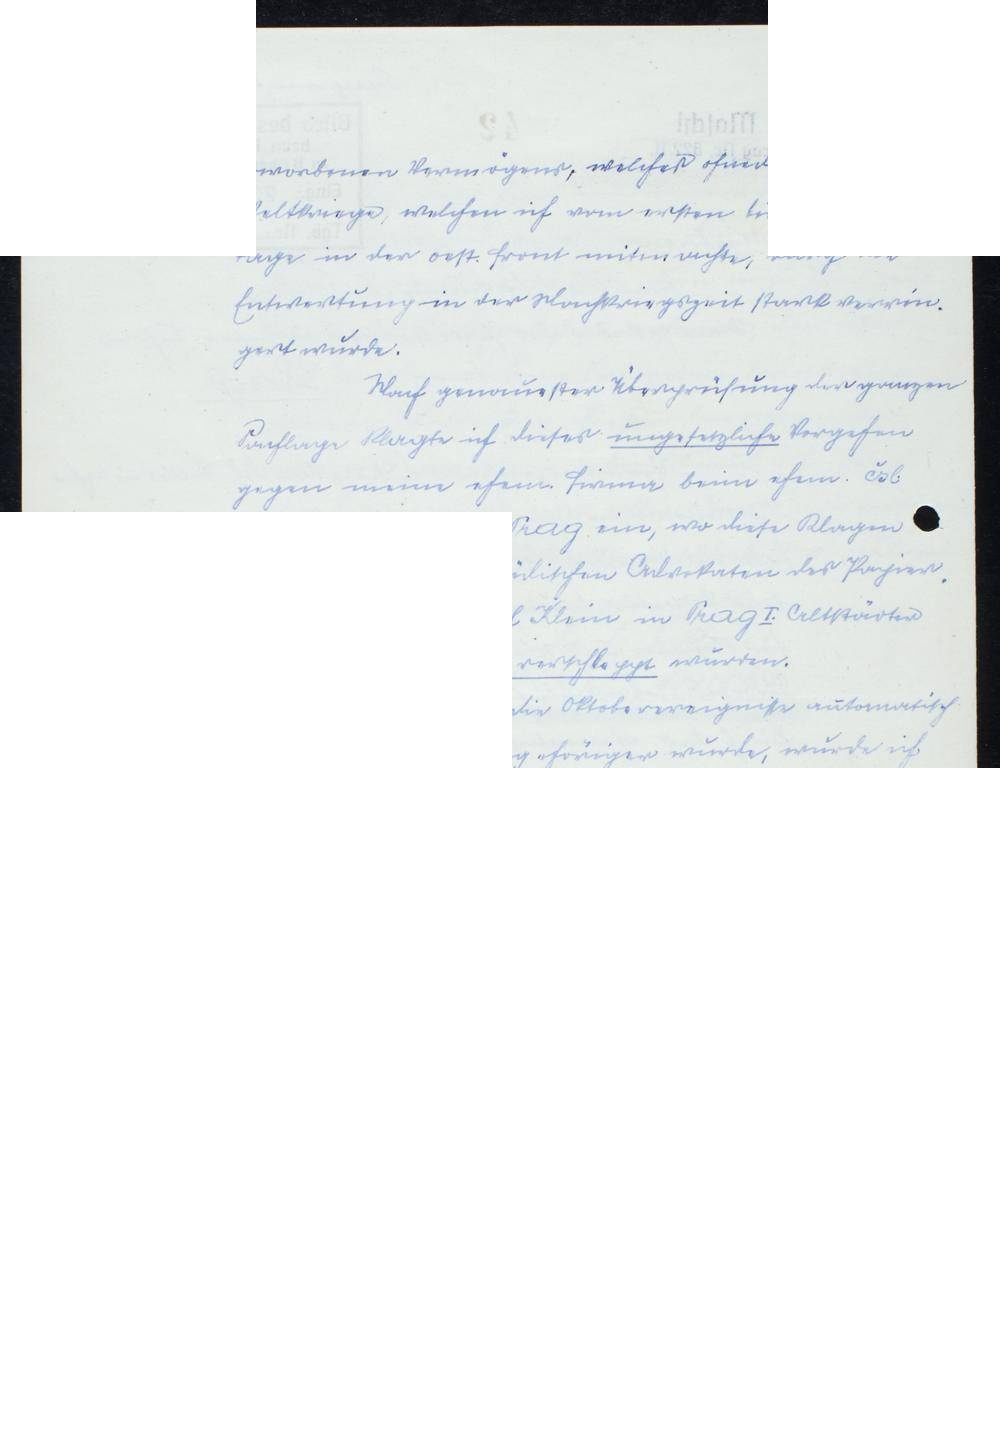 worbenen Vermögens, welches ohned
eltkriege, welchen ich vom ersten bi
tage in der oest. Front mitmachte,
Entwertung in der Nachkriegszeit stark verrin-
gert wurde.
Nach genauester Überprüfung der ganzen
Sachlage klagte ich dieses ungesetzliche Vorgehen
gegen meine ehem. Firma beim ehem. čsl
Prag ein, wo diese Klagen
üdischen Advokaten des Papier-
Klein in Prag I. Altstädter
verschleppt wurden.
die Oktoberereignisse automatisch
gehöriger wurde, wurde ich